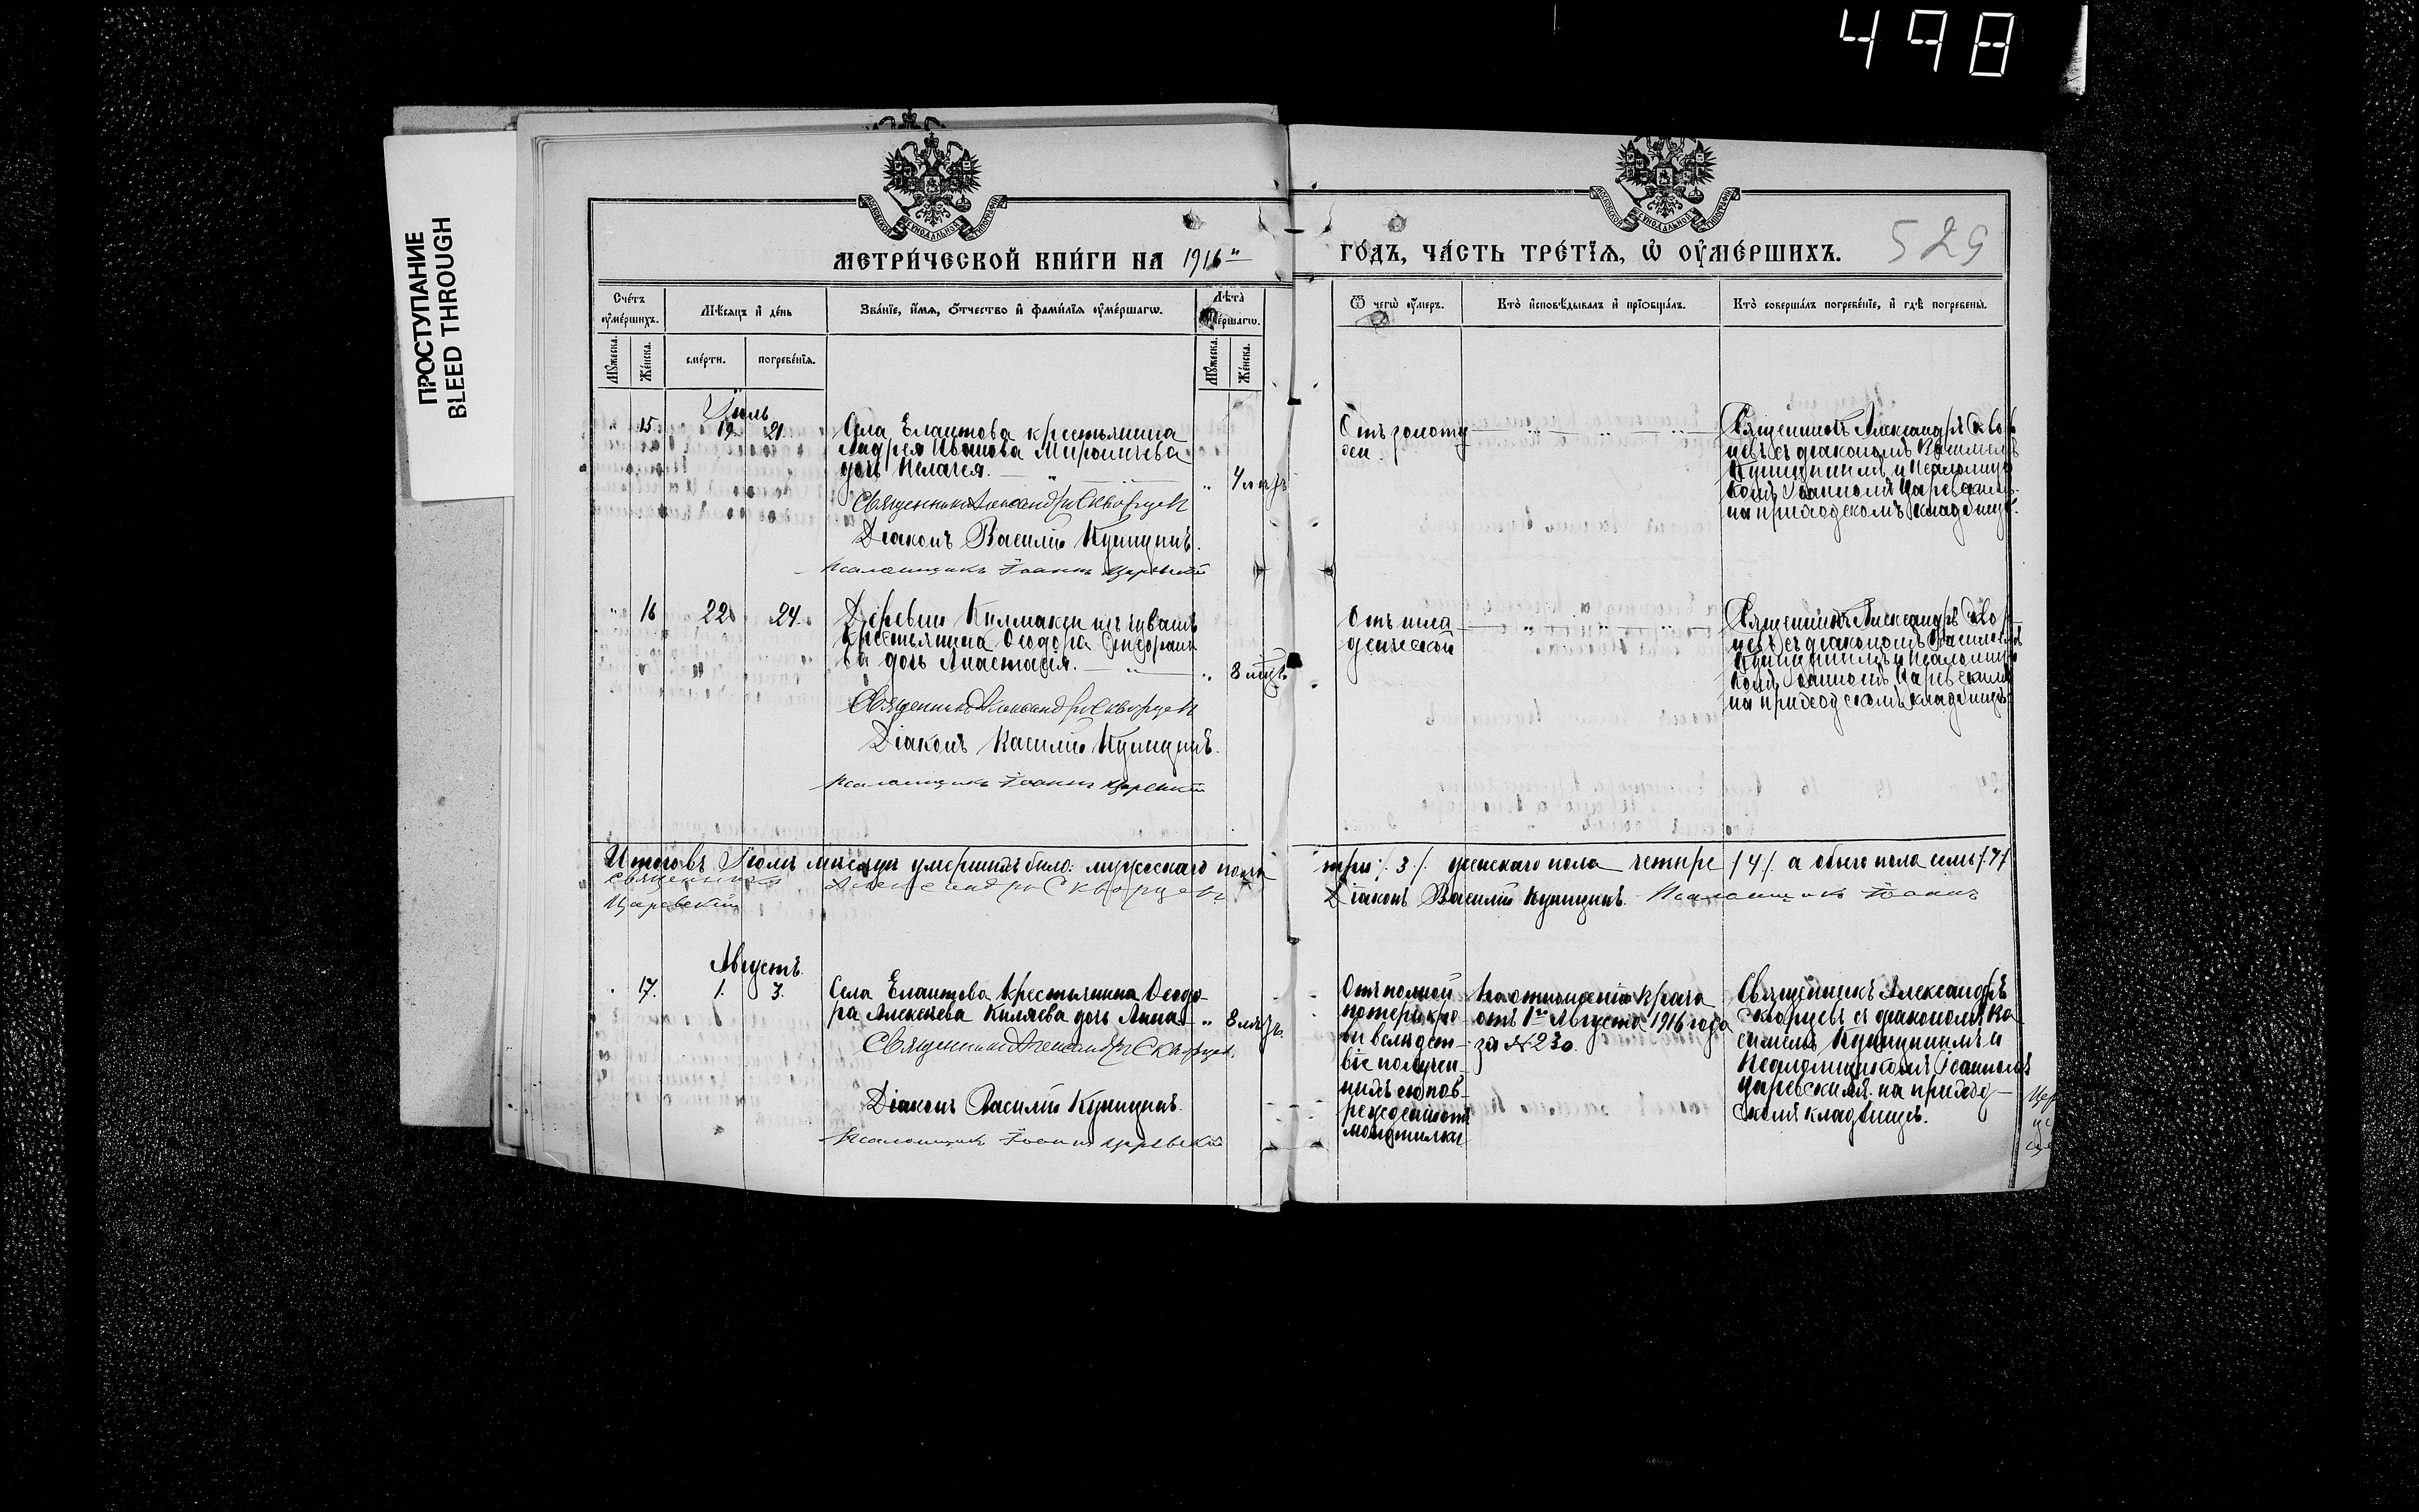 498
ПРОСТУПАНИЕ
BLEED THROUGH
МЕТРИ́ЧЕСКОЙ КНИ́ГИ НА 1916 ГО́ДЪ, ЧА́СТЬ ТРЕ́ТЇѦ, Ѿ ОУ҆МЕ́РШИХЪ.
529
Сче́тъ оу҆ме́ршихъ.
Мѣ́сяцъ и҆ де́нь
Зва́нїе, и҆́мѧ, ѻ҆́тчество и҆ фами́лїѧ оу҆ме́ршагѡ.
Лѣ́та оу҆ме́ршагѡ.
Ѿ чегѡ̀ оу҆́меръ.
Кто̀ и҆сповѣ́дывалъ и҆ прїѡбща́лъ.
Кто̀ соверша́лъ погребе́нїе, и҆ гдѣ̀ погребены̀.
Мꙋ́жеска.
Же́нска.
сме́рти.
погребе́нїѧ.
Мꙋ́жеска.
Же́нска.
Іюль
15. 19. 21.
Села Елаитова крестьянина
Андрея Иванова
дочь Пелагея.
4
Священникъ Александръ Скворцевъ
Діаконъ Василій Купицынъ.
Псаломщикъ Іоаннъ Царевскій
Отъ золоту
хи.
Священникъ Александръ Сквор
цевъ съ діакономъ Василіемъ
Купицынымъ и Псаломщи
комъ Іоанномъ Царевскимъ
на приходскомъ кладбищѣ.
16 22 24.
Деревни изъ чувашъ
крестьянина Ѳеодора
ва дочь Анастасія.
8 мцъ
Священникъ Александръ Скворцевъ
Діаконъ Василій Купицынъ.
Псаломщикъ Іоаннъ Царевскій
Отъ мла
денческой
Священникъ Александръ Сквор
цевъ съ діакономъ Василіемъ
Купицынымъ и Псаломщи
комъ Іоанномъ Царевскимъ
на приходскомъ кладбищѣ.
Итого въ Іюлѣ мѣсяцѣ умершихъ было: мужескаго пола три /3/. женскаго пола четыре /4/. а обоего пола семь /7/
Священникъ Александръ Скворцевъ. Діаконъ Василій Купицынъ. Псаломщикъ Іоаннъ
Царевскій
Августъ.
17. 1. 3.
Села Елаитова крестьянина Ѳеодо-
ра Алексѣева Киляева дочь Анна
8
Священникъ Александръ Скворцевъ.
Діаконъ Василій Купицынъ.
Псаломщикъ Іоаннъ Царевскій
Отъ полной
потери кро
ви вслѣдст-
віе получен-
ныхъ ею пов-
режденій отъ
молотилки
По отношенію врача
отъ 1го Августа 1916 года
за № 230.
Священникъ Александръ
Скворцевъ съ діакономъ Ва
силіемъ Купицынымъ и
Псаломщикомъ Іоанномъ
Царевскимъ на приход-
скомъ кладбищѣ.